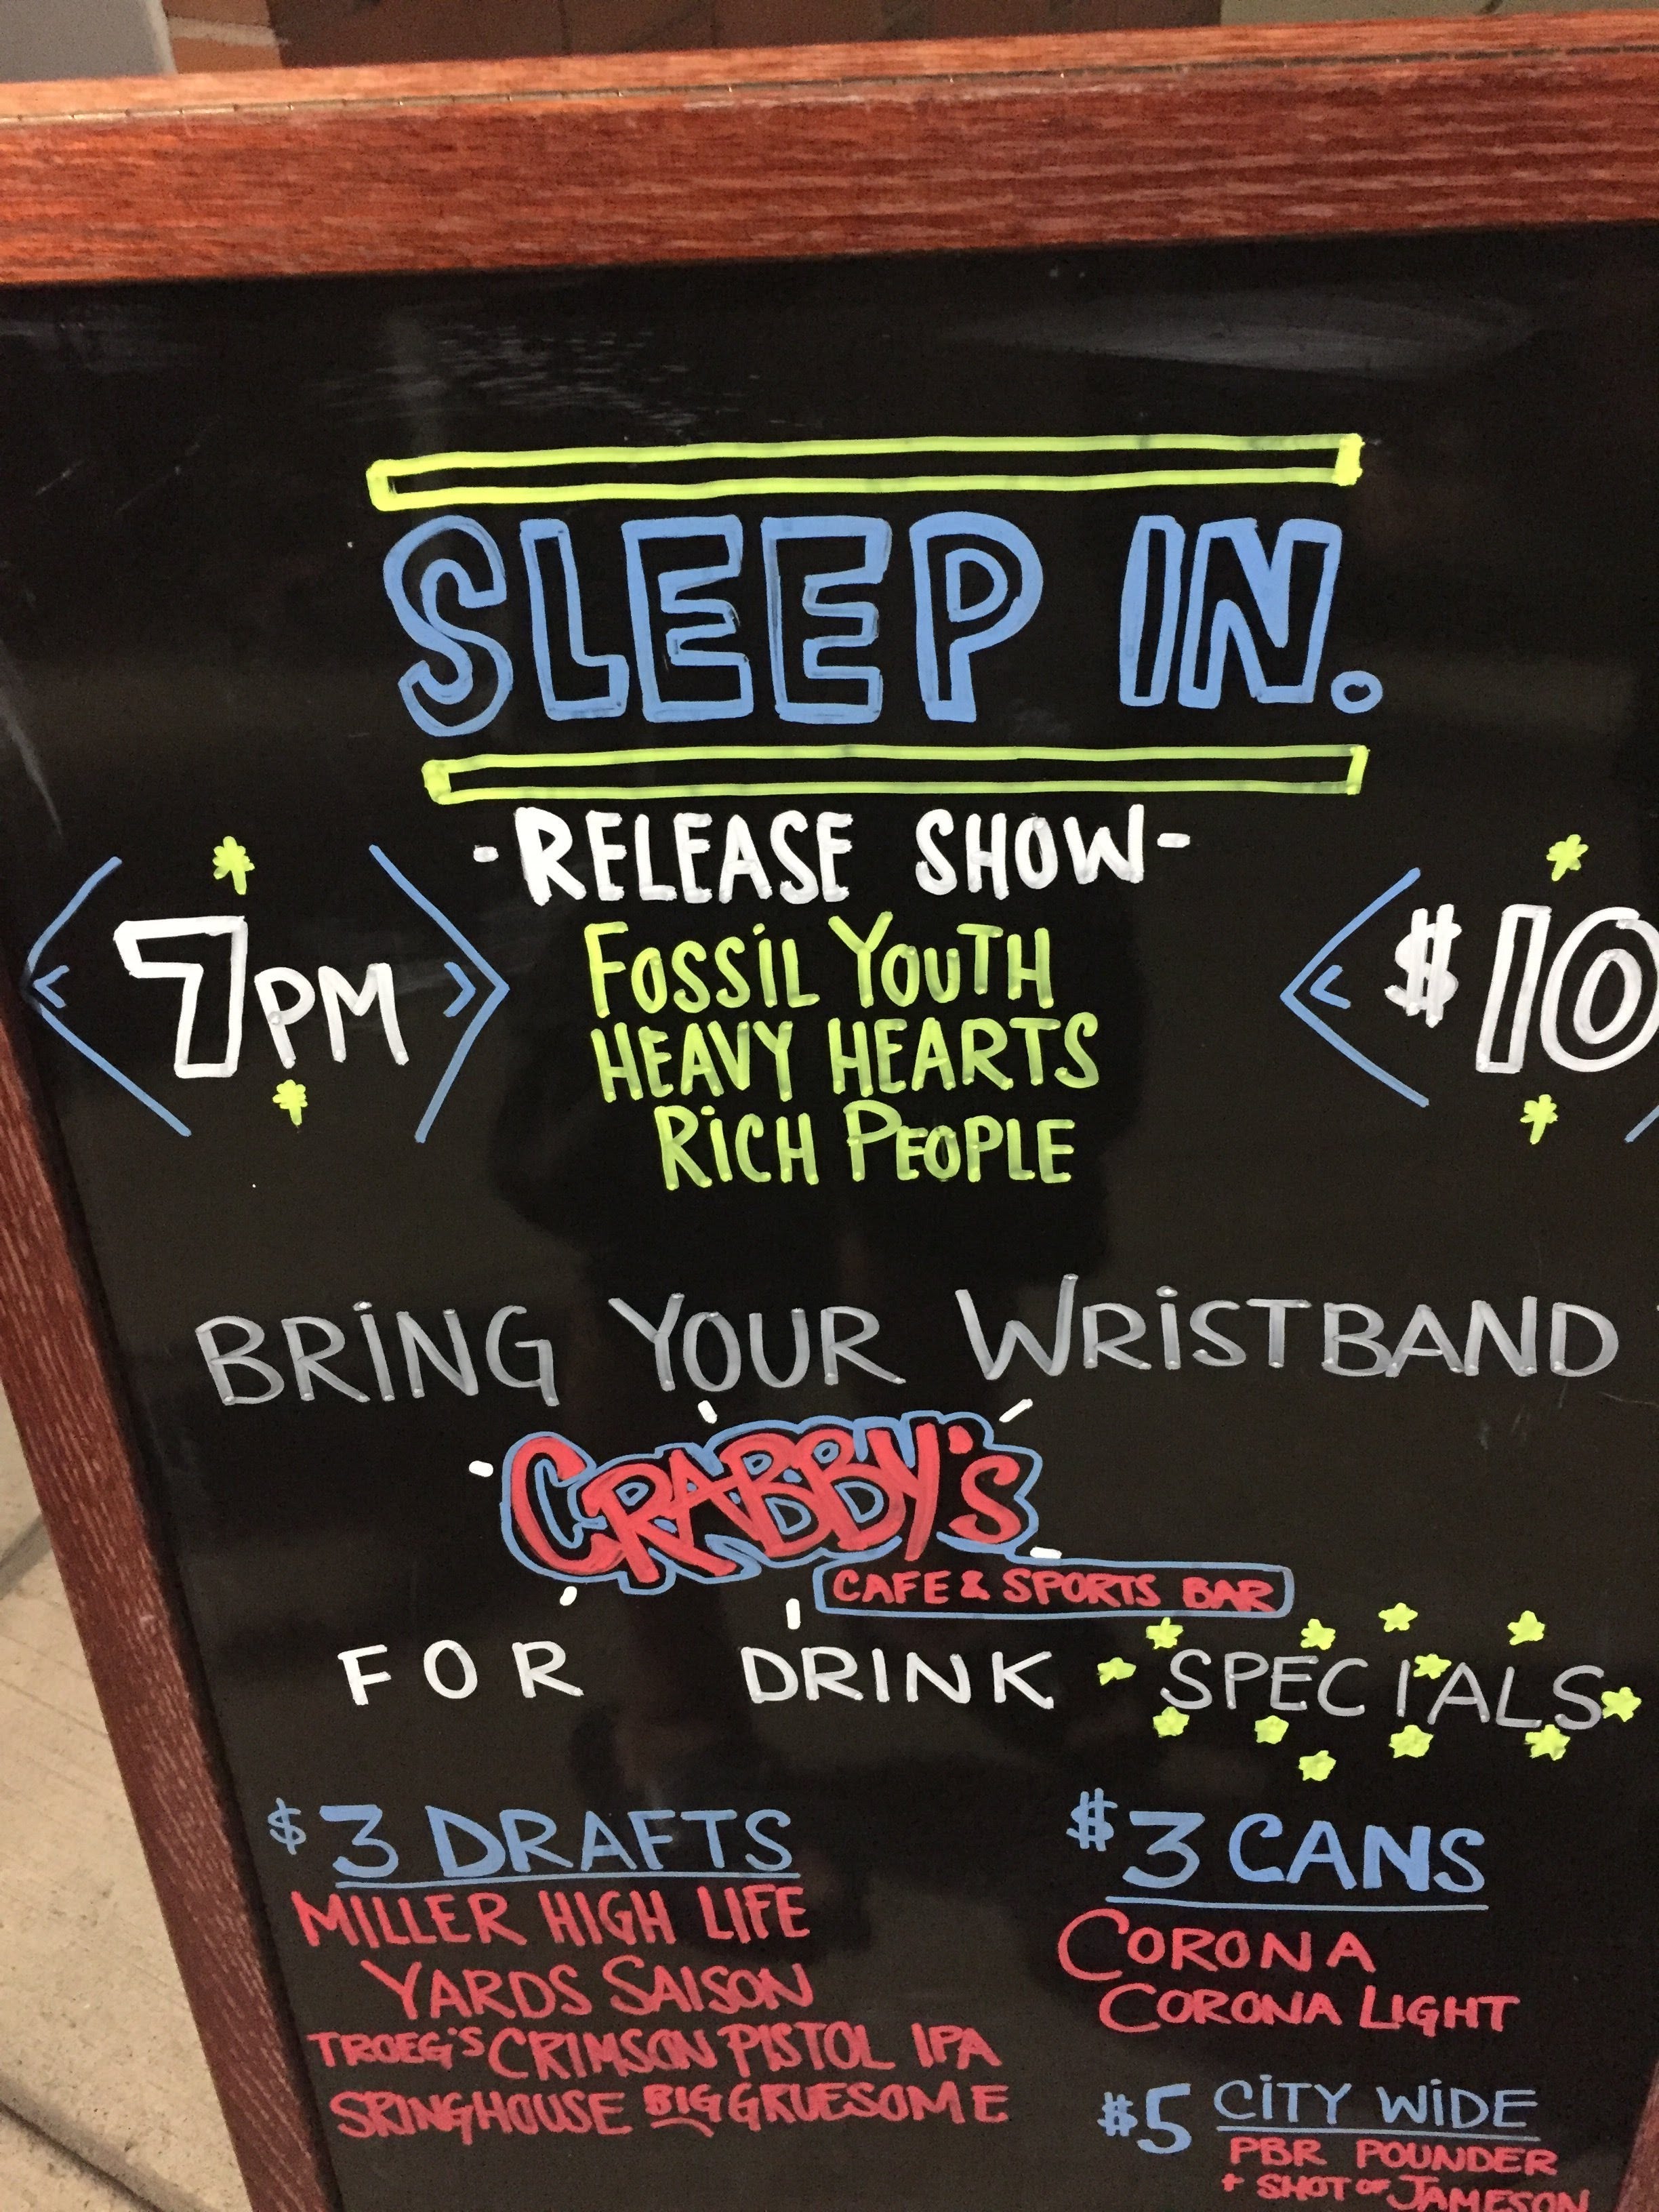 SLEEP IN.
-RELEASE SHOW-
7PM
$10
FOSSiL YOUTH
HEAVY HEARTS
RiCH PEOPLE
BRiNG YOUR WRiSTBAND
CRABBY'S
CAFE & SPORTS BAR
FOR DRINK SPECIALS
$3 DRAFTS
MILLER HIGH LIFE
YARDS SAISON
TROEG'S CRIMSON PISTOL IPA
SRINGHOUSE BIG GRUESOME
$3 CANS
CORONA
CORONA LIGHT
$5 CiTY WiDE
PBR POUNDER
+ SHOT OF JAMESON